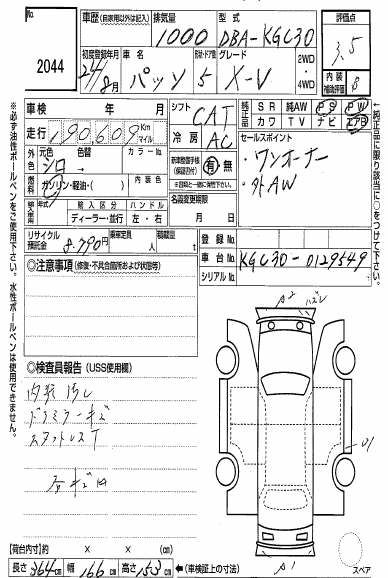 2044
車歴 (自家用以外は記入)
排気量 1000
型式 DBA-KGC30
評価点 3.5
初度登録年月 24年8月
車名 パッソ
ドア数 5
グレード X-V
2WD・4WD
内装補助評価 B
車検 年 月
シフト CAT
純正品 SR 純AW PS PW
カワ TV ナビ エアB
走行 190609 Km マイル
冷房 AC
外色 元色 シロ 色替 → カラーNo.
セールスポイント
・ワンオーナー
・外AW
燃料 ガソリン・軽油・( ) 内装色
新車整備手帳(保証書付) 有・無
輸入区分 ハンドル
ディーラー・並行 左・右
名義変更期限 月 日
リサイクル預託金 8,790円
乗車定員 人
積載量 t
登録No.
車台No. KGC30-0129549
シリアルNo.
◎注意事項 (修復・不具合箇所および状態等)
A2
◎検査員報告 (USS使用欄)
内装汚レ
ドアミラーキズ
スタットレスT
U1
【荷台内寸】 × × (cm)
長さ 364cm 幅 166cm 高さ 153cm ←(車検証上の寸法)
A1
スペア
※必ず油性ボールペンをご使用下さい。水性ボールペンは使用できません。
←純正品に限り該当に○をつけて下さい。